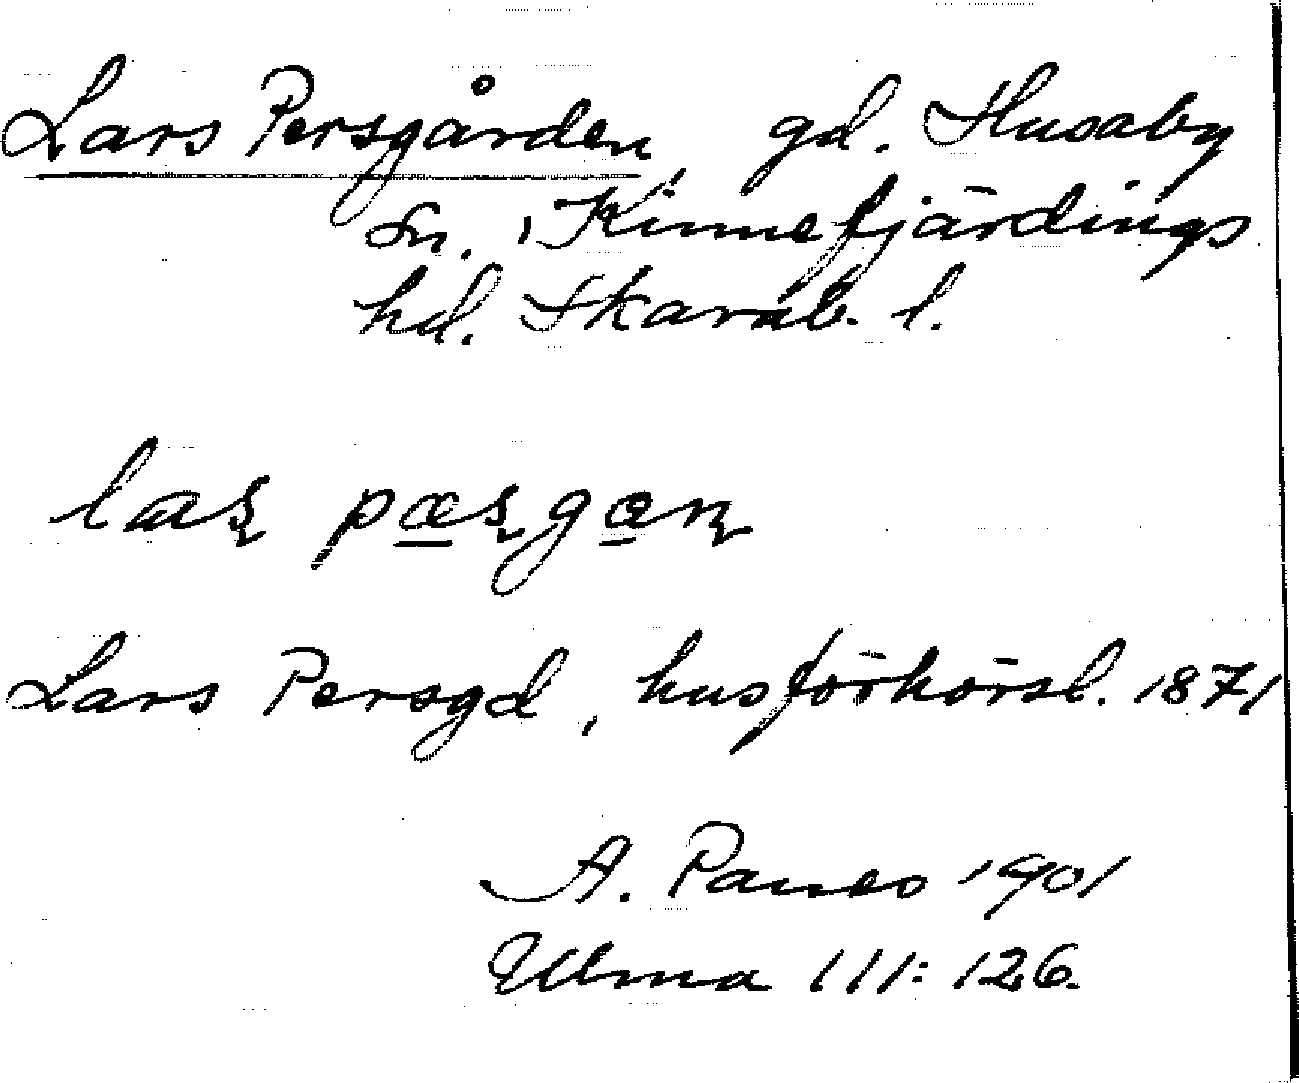 Lars Persgården, gd. Husaby
sn., Kinnefjärdings
hd. Skarab. l.
las pæsgæn
Lars Persgd, husförhörsl. 1871
A. Paues 1901
Ulma 111:126.